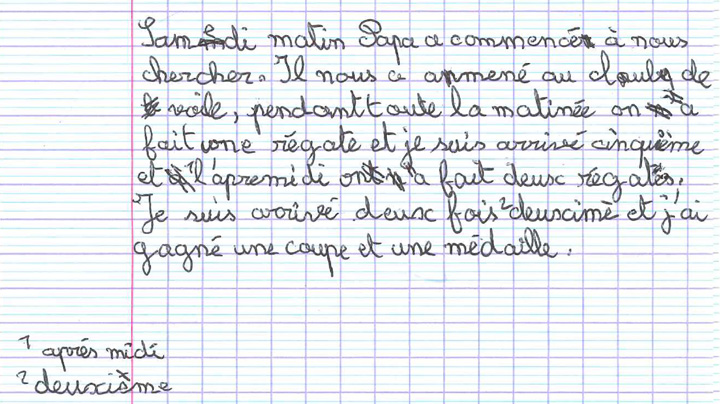 Samedi matin Papa a commencé à nous
chercher. Il nous a anmené au club de
voile, pendant toute la matinée on a
fait une régate et je suis arrivé cinquième
et ¹l'apremidi on a fait deux régates.
Je suis arrivé deux fois ²deuxcimè et j'ai
gagné une coupe et une médaille.
¹ après midi
² deuxième